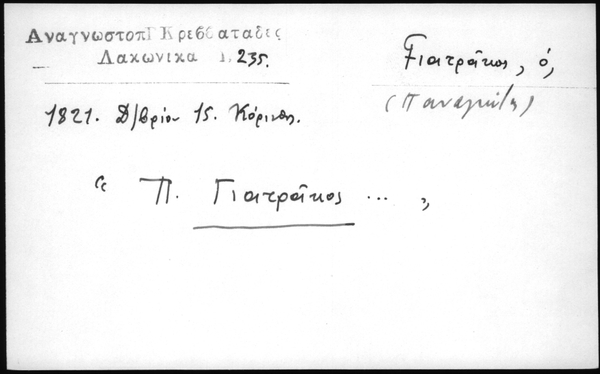 ΑναγνωστοπΓ Κρεββαταδες
Λακωνικα 1, 235.
Γιατρᾶκος, ὁ,
(Παναγιώτης)
1821. Δ/βρίου 15. Κόρινθος.
“ Π. Γιατρᾶκος ... „